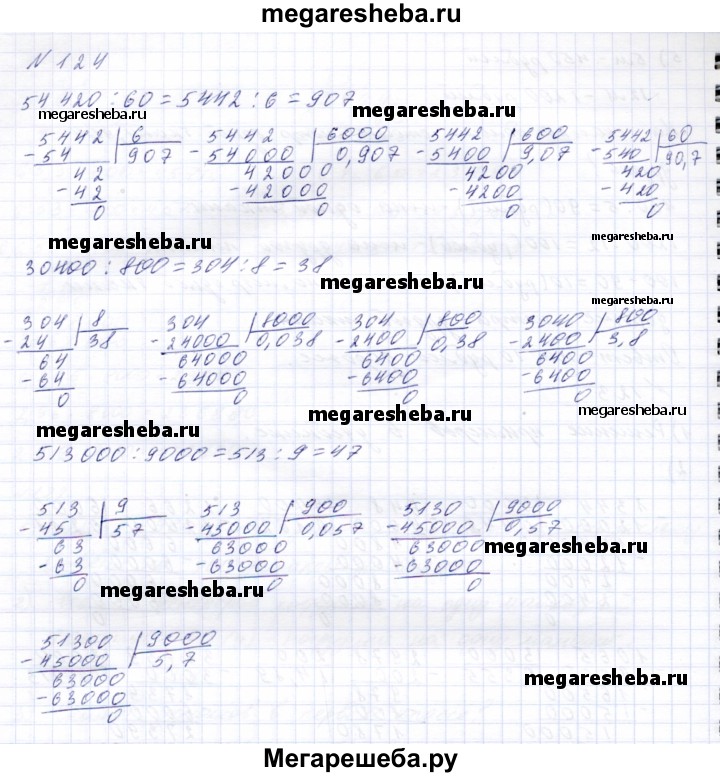 megaresheba.ru
N 124
54 420 : 60 = 5442 : 6 = 907
megaresheba.ru megaresheba.ru
5442 | 6 5442 | 6000 5442 | 600 5442 | 60
- 54 | 907 - 54000 | 0,907 - 5400 | 9,07 - 540 | 90,7
42 42000 4200 420
- 42 - 42000 - 4200 - 420
0 0 0 0
megaresheba.ru megaresheba.ru
30400 : 800 = 304 : 8 = 38
megaresheba.ru
megaresheba.ru
304 | 8 304 | 8000 304 | 800 3040 | 800
- 24 | 38 - 24000 | 0,038 - 2400 | 0,38 - 2400 | 3,8
64 64000 6400 6400
- 64 - 64000 - 6400 - 6400
0 0 0 0
megaresheba.ru megaresheba.ru
megaresheba.ru
513000 : 9000 = 513 : 9 = 47
513 | 9 513 | 900 5130 | 9000
- 45 | 57 - 45000 | 0,057 - 45000 | 0,57
63 63000 63000
- 63 - 63000 - 63000
0 0 0
megaresheba.ru
megaresheba.ru
51300 | 9000
- 45000 | 5,7
63000
- 63000
0
megaresheba.ru
Мегарешеба.ру